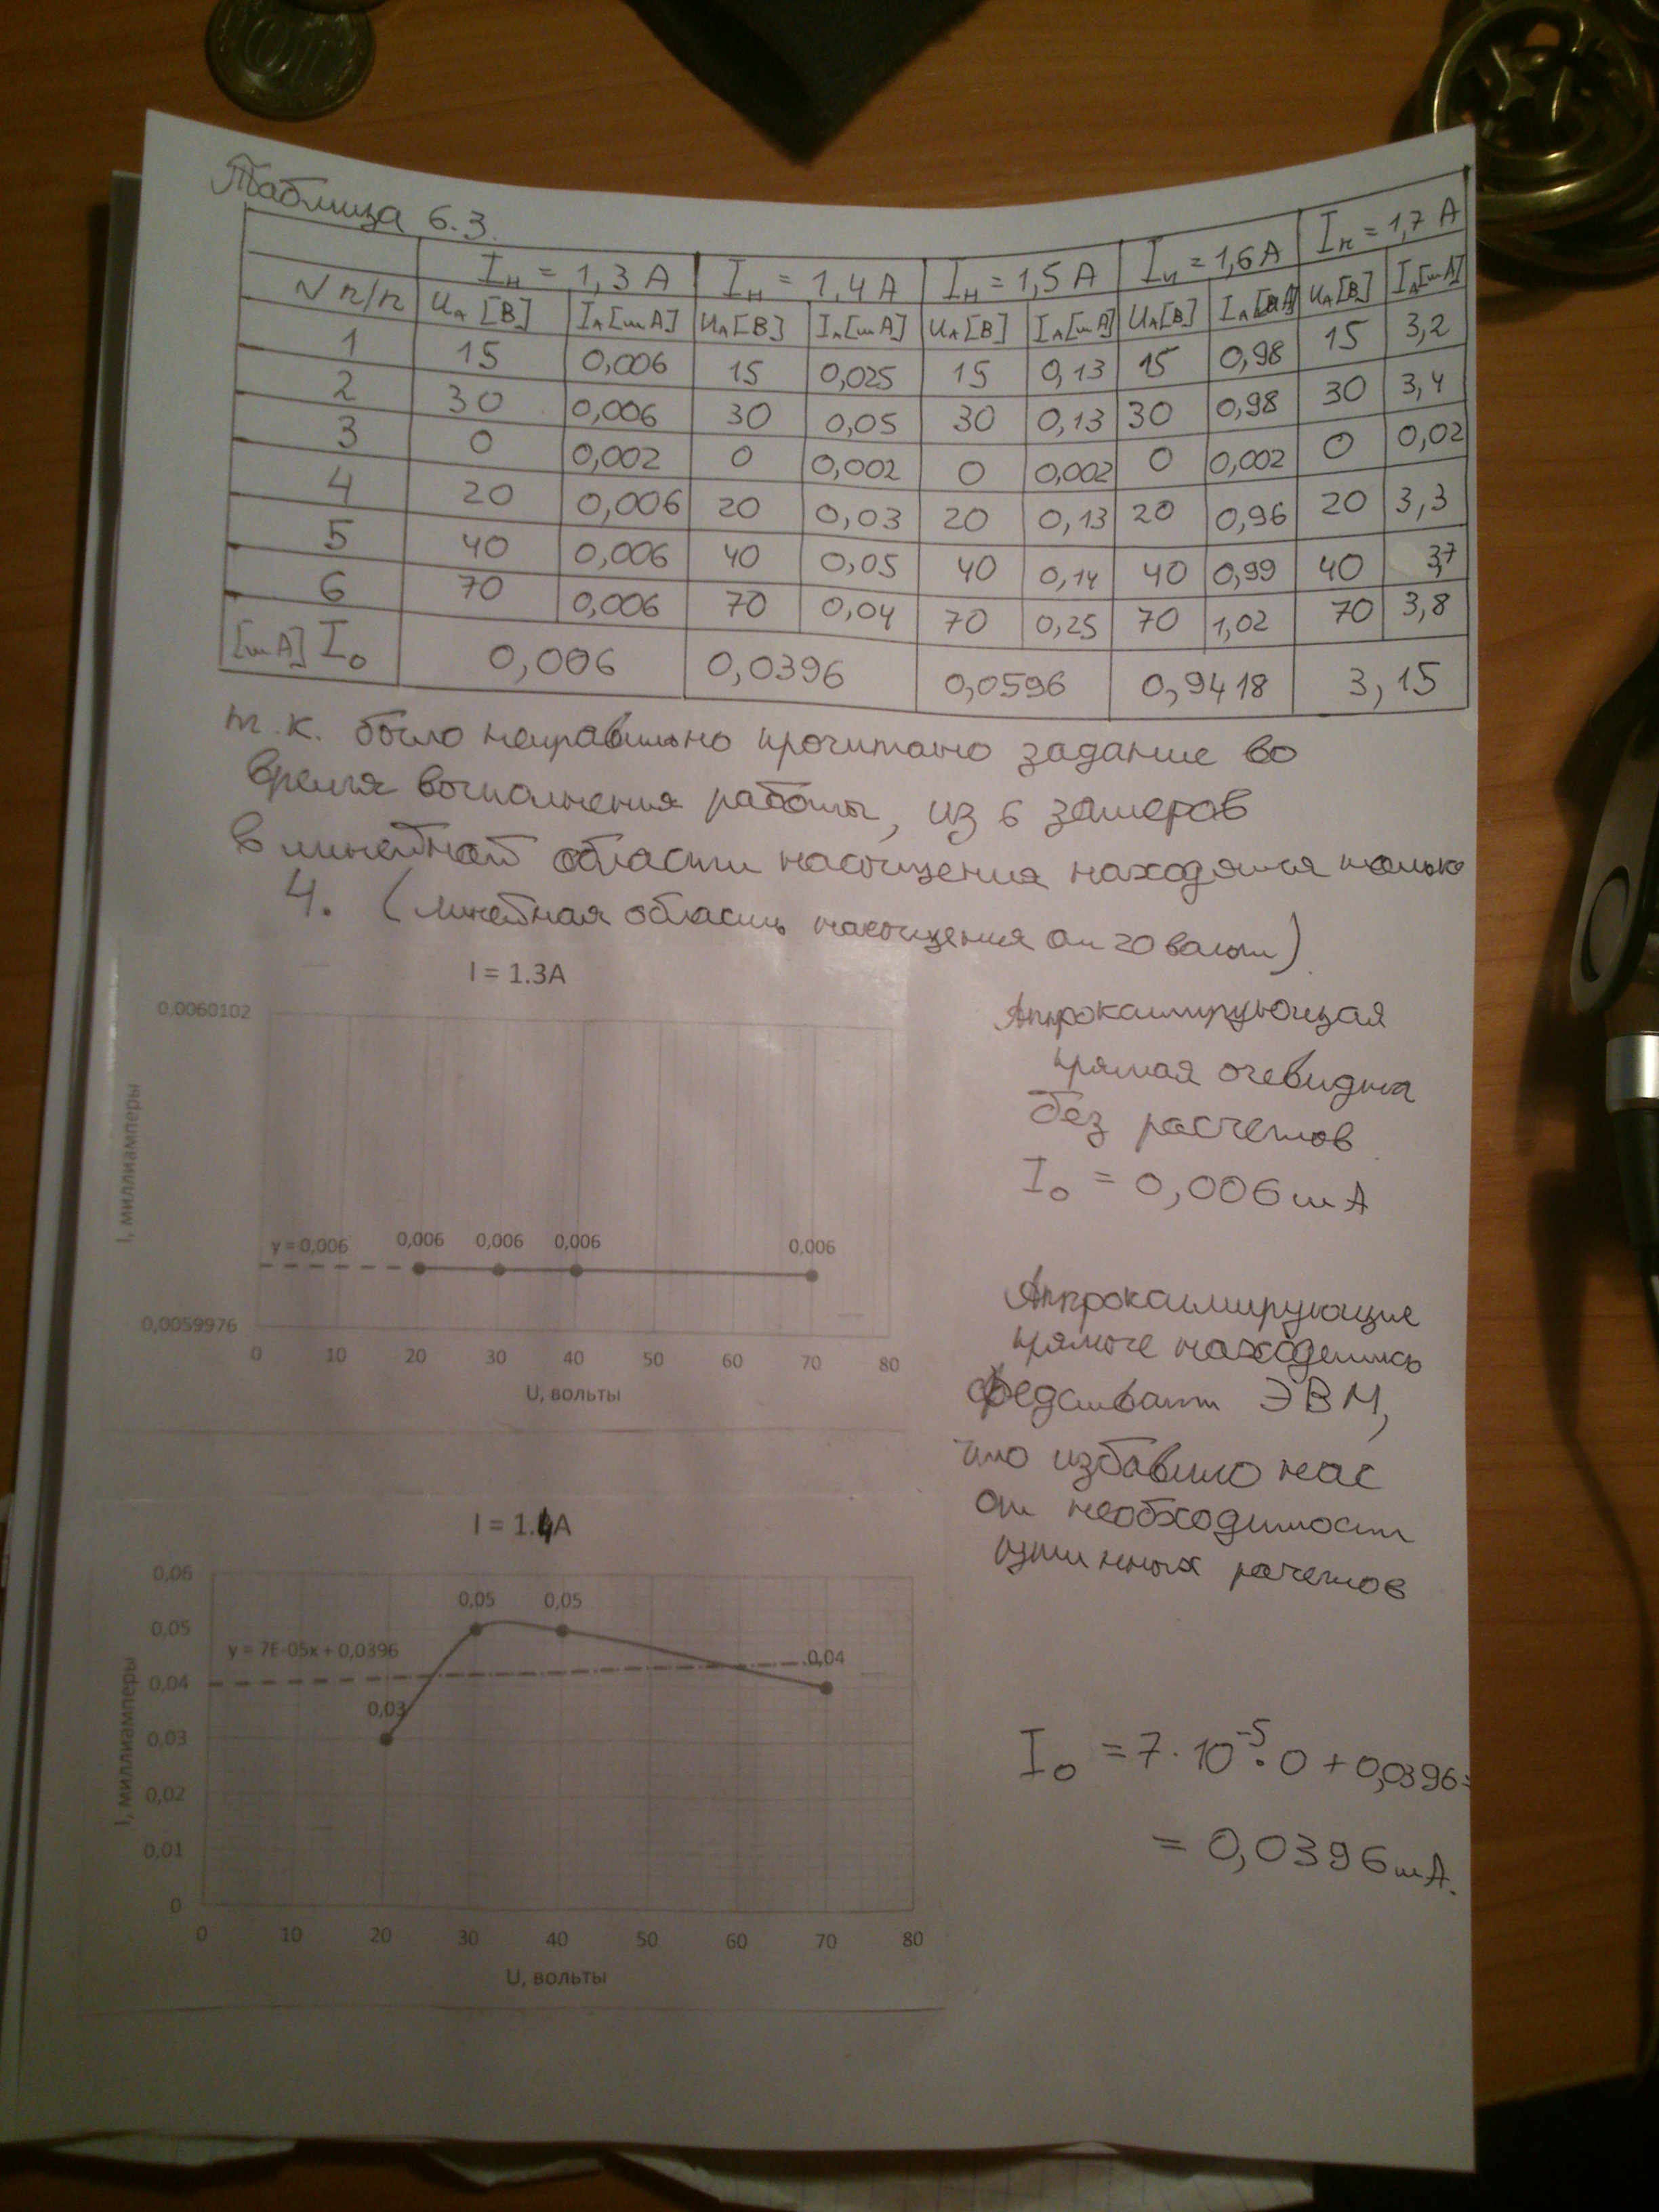 Таблица 6.3.
Iн = 1,3 А Iн = 1,4 А Iн = 1,5 А Iн = 1,6 А Iн = 1,7 А
N п/п Uа [В] Iа [mA] Uа [В] Iа [mA] Uа [В] Iа [mA] Uа [В] Iа [mA] Uа [В] Iа [mA]
1 15 0,006 15 0,025 15 0,13 15 0,98 15 3,2
2 30 0,006 30 0,05 30 0,13 30 0,98 30 3,4
3 0 0,002 0 0,002 0 0,002 0 0,002 0 0,02
4 20 0,006 20 0,03 20 0,13 20 0,96 20 3,3
5 40 0,006 40 0,05 40 0,14 40 0,99 40 3,7
6 70 0,006 70 0,04 70 0,25 70 1,02 70 3,8
[mA] I₀ 0,006 0,0396 0,0596 0,9418 3,15
т.к. было неправильно прочитано задание во
время выполнения работы, из 6 замеров
в линейной области насыщения находятся только
4. (линейная область насыщения от 20 вольт)
I = 1.3A
0,0060102
I, миллиамперы
y = 0,006 0,006 0,006 0,006 0,006
0,0059976
0 10 20 30 40 50 60 70 80
U, вольты
Аппроксимирующая
прямая очевидна
без расчетов
I₀ = 0,006 mA
Аппроксимирующие
прямые находились
средствами ЭВМ,
что избавило нас
от необходимости
расчетов
I = 1.4A
0,06
0,05
0,04
0,03
0,02
0,01
0
I, миллиамперы
0,05 0,05
y = 7E-05x + 0,0396
0,04
0,03
0 10 20 30 40 50 60 70 80
U, вольты
I₀ = 7·10⁻⁵·0 + 0,0396 =
= 0,0396 mA.